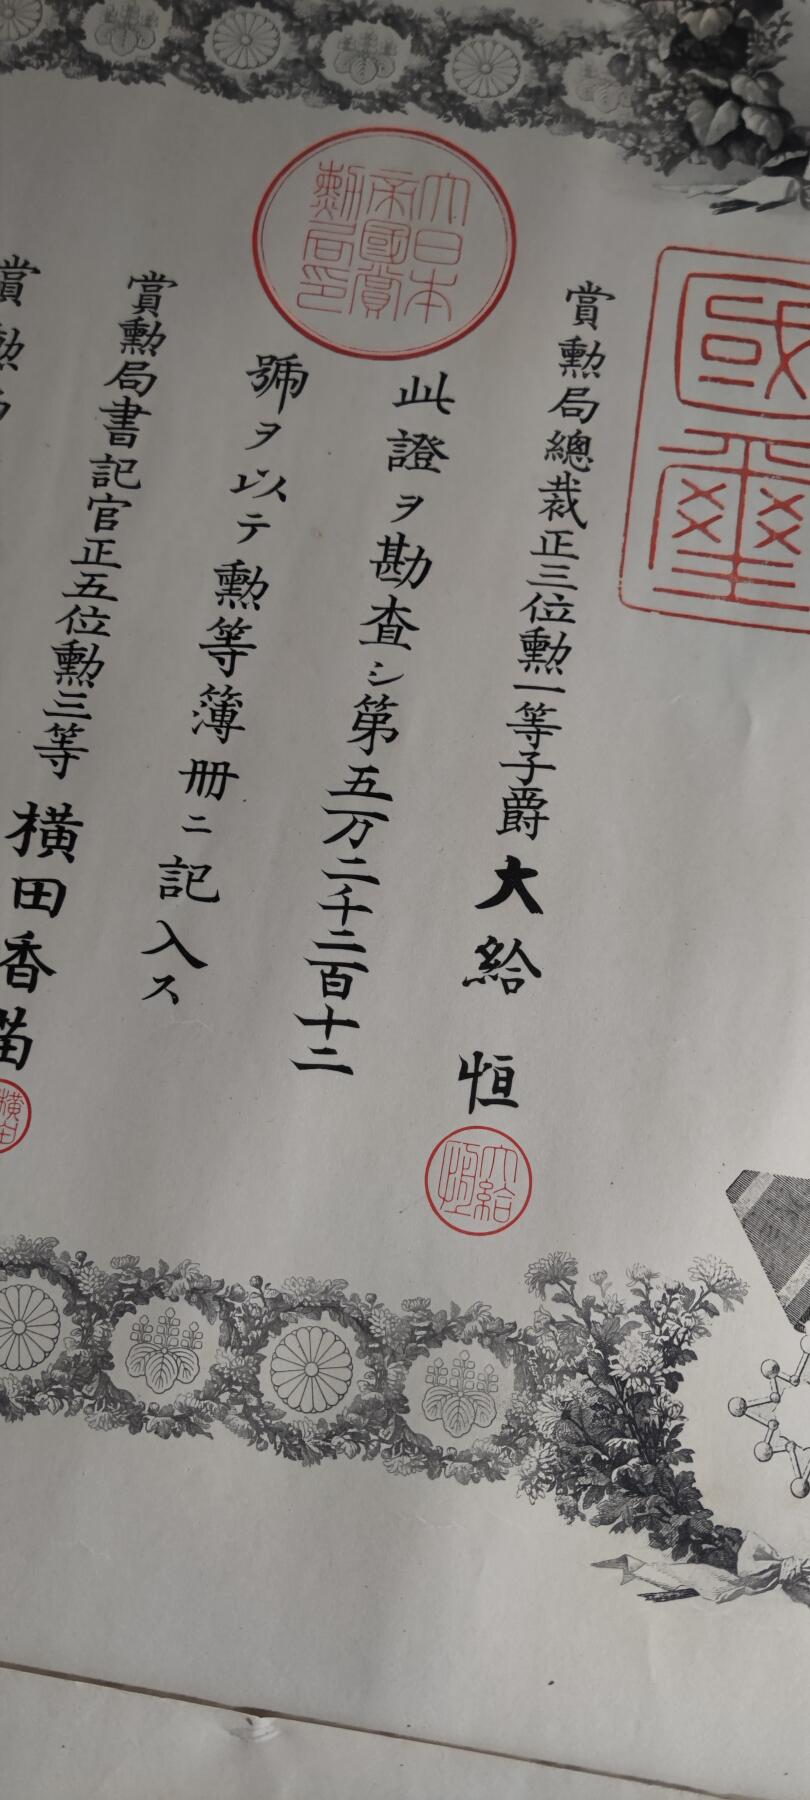 國璽
賞勲局總裁正三位勲一等子爵大給恒
大給恒
大日本
帝國賞
勲局印
此證ヲ勘査シ第五万二千二百十二
號ヲ以テ勲等簿冊ニ記入ス
賞勲局書記官正五位勲三等横田香苗
横田
賞勲局